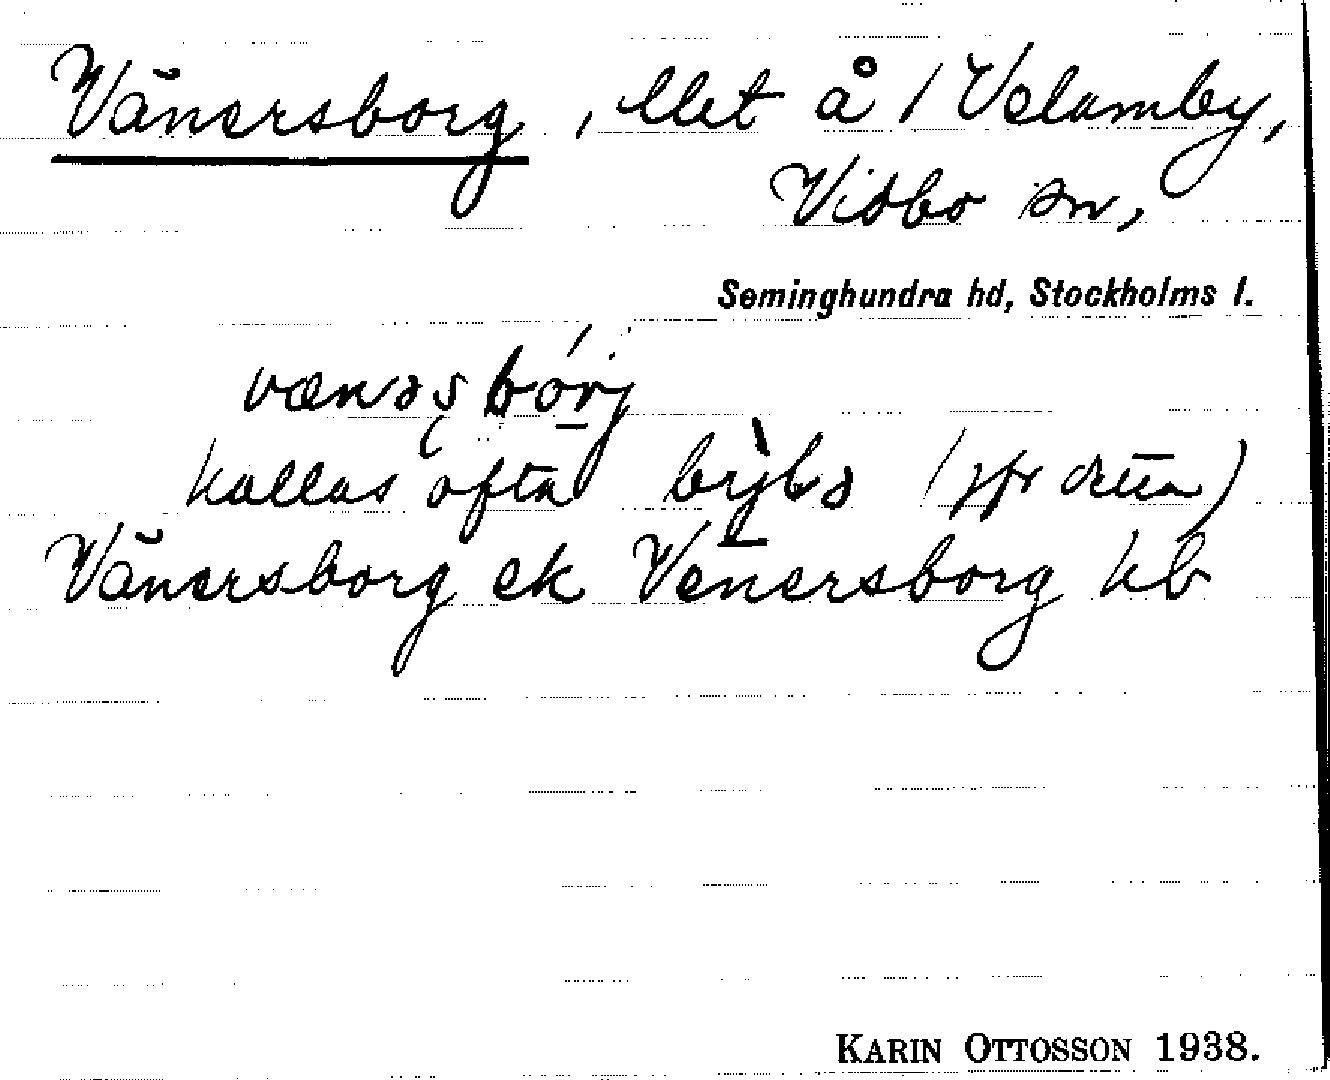 Vänersborg, llet å 1 Velamby,
Vidbo sn,
Seminghundra hd, Stockholms l.
vænəs bórj
kallas ofta býlə (jfr detta)
Vänersborg ek Venersborg hb
KARIN OTTOSSON 1938.